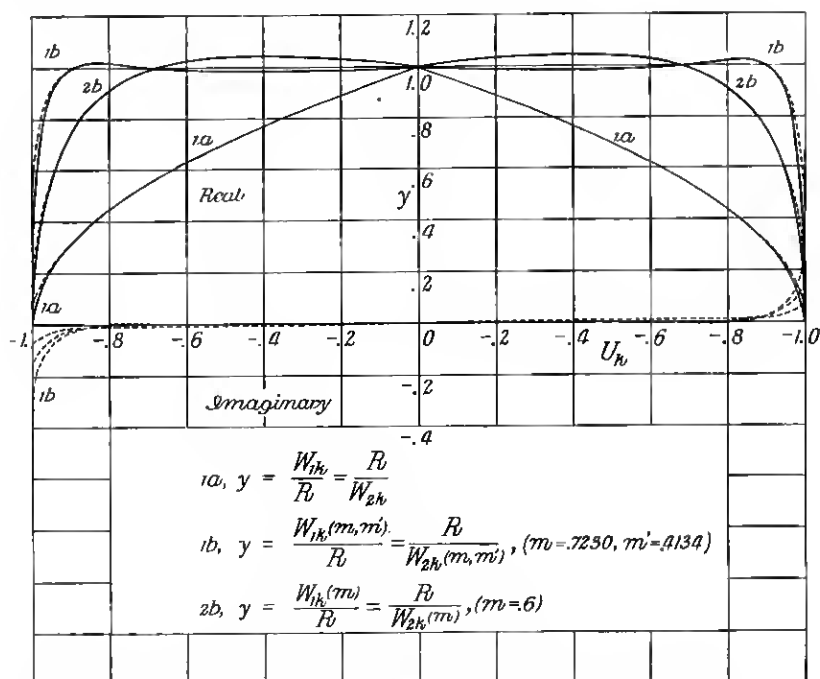 1.2
1b
1b
2b
1.0
2b
.8
1a
1a
Real
y
.6
.4
.2
1a
-1.
-.8
-.6
-.4
-.2
0
-.2
-.4
-.6
-.8
-1.0
U_k
1b
-.2
Imaginary
-.4
1a, y = W_1k / R = R / W_2k
1b, y = W_1k(m,m') / R = R / W_2k(m,m'), (m=.7230, m'=.4134)
2b, y = W_1k(m) / R = R / W_2k(m), (m=.6)